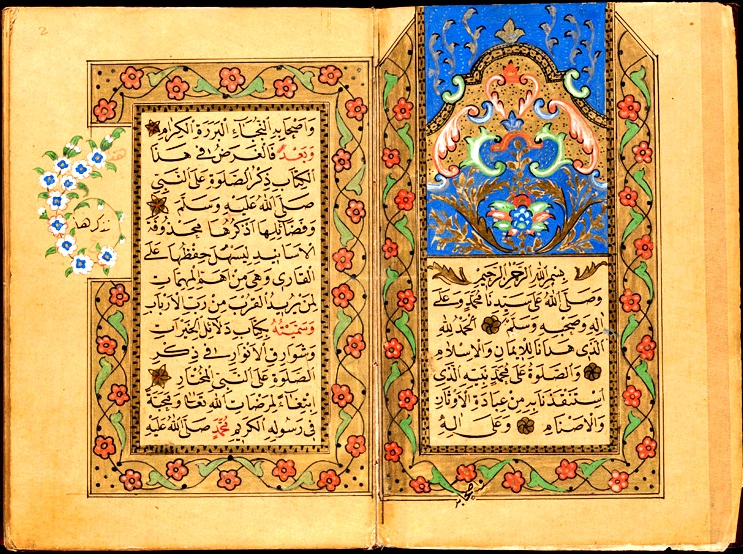 بسم الله الرحمن الرحيم
وصلى الله على سيدنا محمد وعلى
اله وصحبه وسلم الحمد لله
الذي هدانا للايمان والاسلام
والصلوة على محمد نبيه الذي
استنقذنا به من عبادة الاوثان
والاصنام وعلى اله
واصحابه النجباء البررة الكرام
وبعد فالغرض في هذا
الكتاب ذكر الصلوة على النبي
صلى الله عليه وسلم
وفضائلها اذكرها محذوفة
الاسانيد ليسهل حفظها على
القاري وهي من اهم المهمات
لمن يريد القرب من رب الارباب
وسميته بكتاب دلائل الخيرات
وشوارق الانوار في ذكر
الصلوة على النبي المختار
ابتغاء لمرضات الله تعالى ومحبة
في رسوله الكريم محمد صلى الله عليه